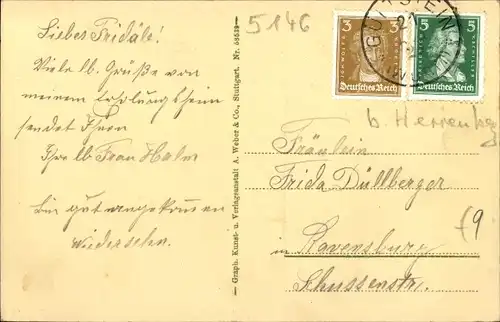 Liebes Fridäle!
Viele lb. Grüße von
meinem Erholungsheim
sendet Ihnen
Ihre lb Frau Halm
Bin gut angekommen
wiedersehn.
Graph. Kunst- u. Verlagsanstalt A. Weber & Co., Stuttgart. Nr. 58529
5146
3 3
Deutsches Reich
5 5
Deutsches Reich
GÜLTSTEIN
b. Herrenbg
Fräulein
Frida Düllberger
in Ravensburg
Schussenstr.